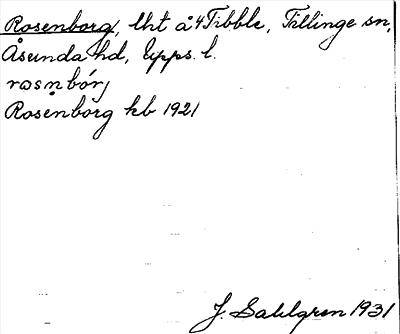 Rosenborg, lht å 4 Tibble, Tillinge sn,
Åsunda hd, Upps. l.
Rosenborg kb 1921
J. Sahlgren 1931